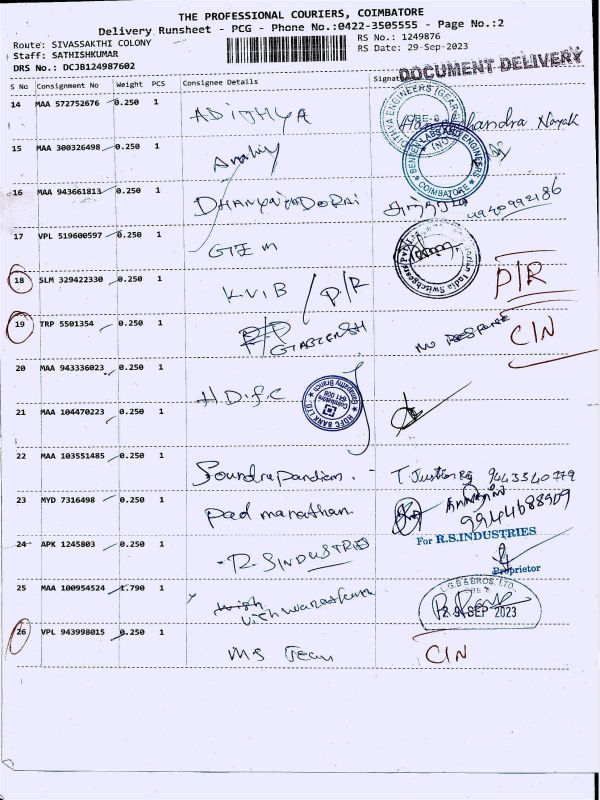 THE PROFESSIONAL COURIERS, COIMBATORE
Delivery Runsheet - PCG - Phone No.:0422-3505555 - Page No.:2
Route: SIVASSAKTHI COLONY RS No.: 1249876
Staff: SATHISHKUMAR RS Date: 29-Sep-2023
DRS No.: DCJB124987602 DOCUMENT DELIVERY
S No Consignment No Weight PCS Consignee Details Signat
14 MAA 572752676 0.250 1 ADITHYA Chandra Nayak
15 MAA 300326498 0.250 1
BENTEN LABS AND ENGINEERS COIMBATORE
16 MAA 943661813 0.250 1
17 VPL 519600597 0.250 1 GTE M
18 SLM 329422330 0.250 1 KVIB / P/R P/R
19 TRP 5501354 0.250 1 NO RESPONSE CIN
20 MAA 943336023 0.250 1 HDFC
HDFC BANK LTD. Ganapathy Branch Coimbatore 641 006
21 MAA 104470223 0.250 1
22 MAA 103551485 0.250 1 Soundrapandian. T. Justin 9443540779
23 MYD 7316498 0.250 1 Padmanathan 9944688909
24 APK 1245803 0.250 1 R.S INDUSTRIES For R.S.INDUSTRIES
Proprietor
25 MAA 100954524 1.790 1 Vishwanathan
L.G.B & BROS. LTD.
29 SEP 2023
26 VPL 943998015 0.250 1 MS Team CIN